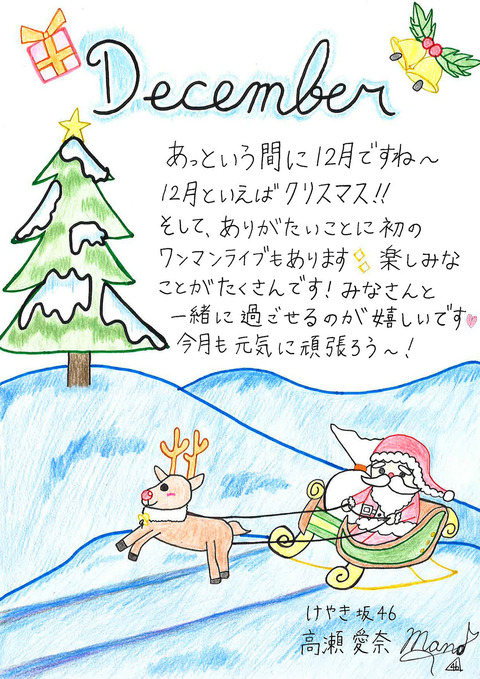 December
あっという間に12月ですね～
12月といえばクリスマス!!
そして、ありがたいことに初の
ワンマンライブもあります 楽しみな
ことがたくさんです！みなさんと
一緒に過ごせるのが嬉しいです
今月も元気に頑張ろう〜！
けやき坂46
高瀬愛奈 mana
46